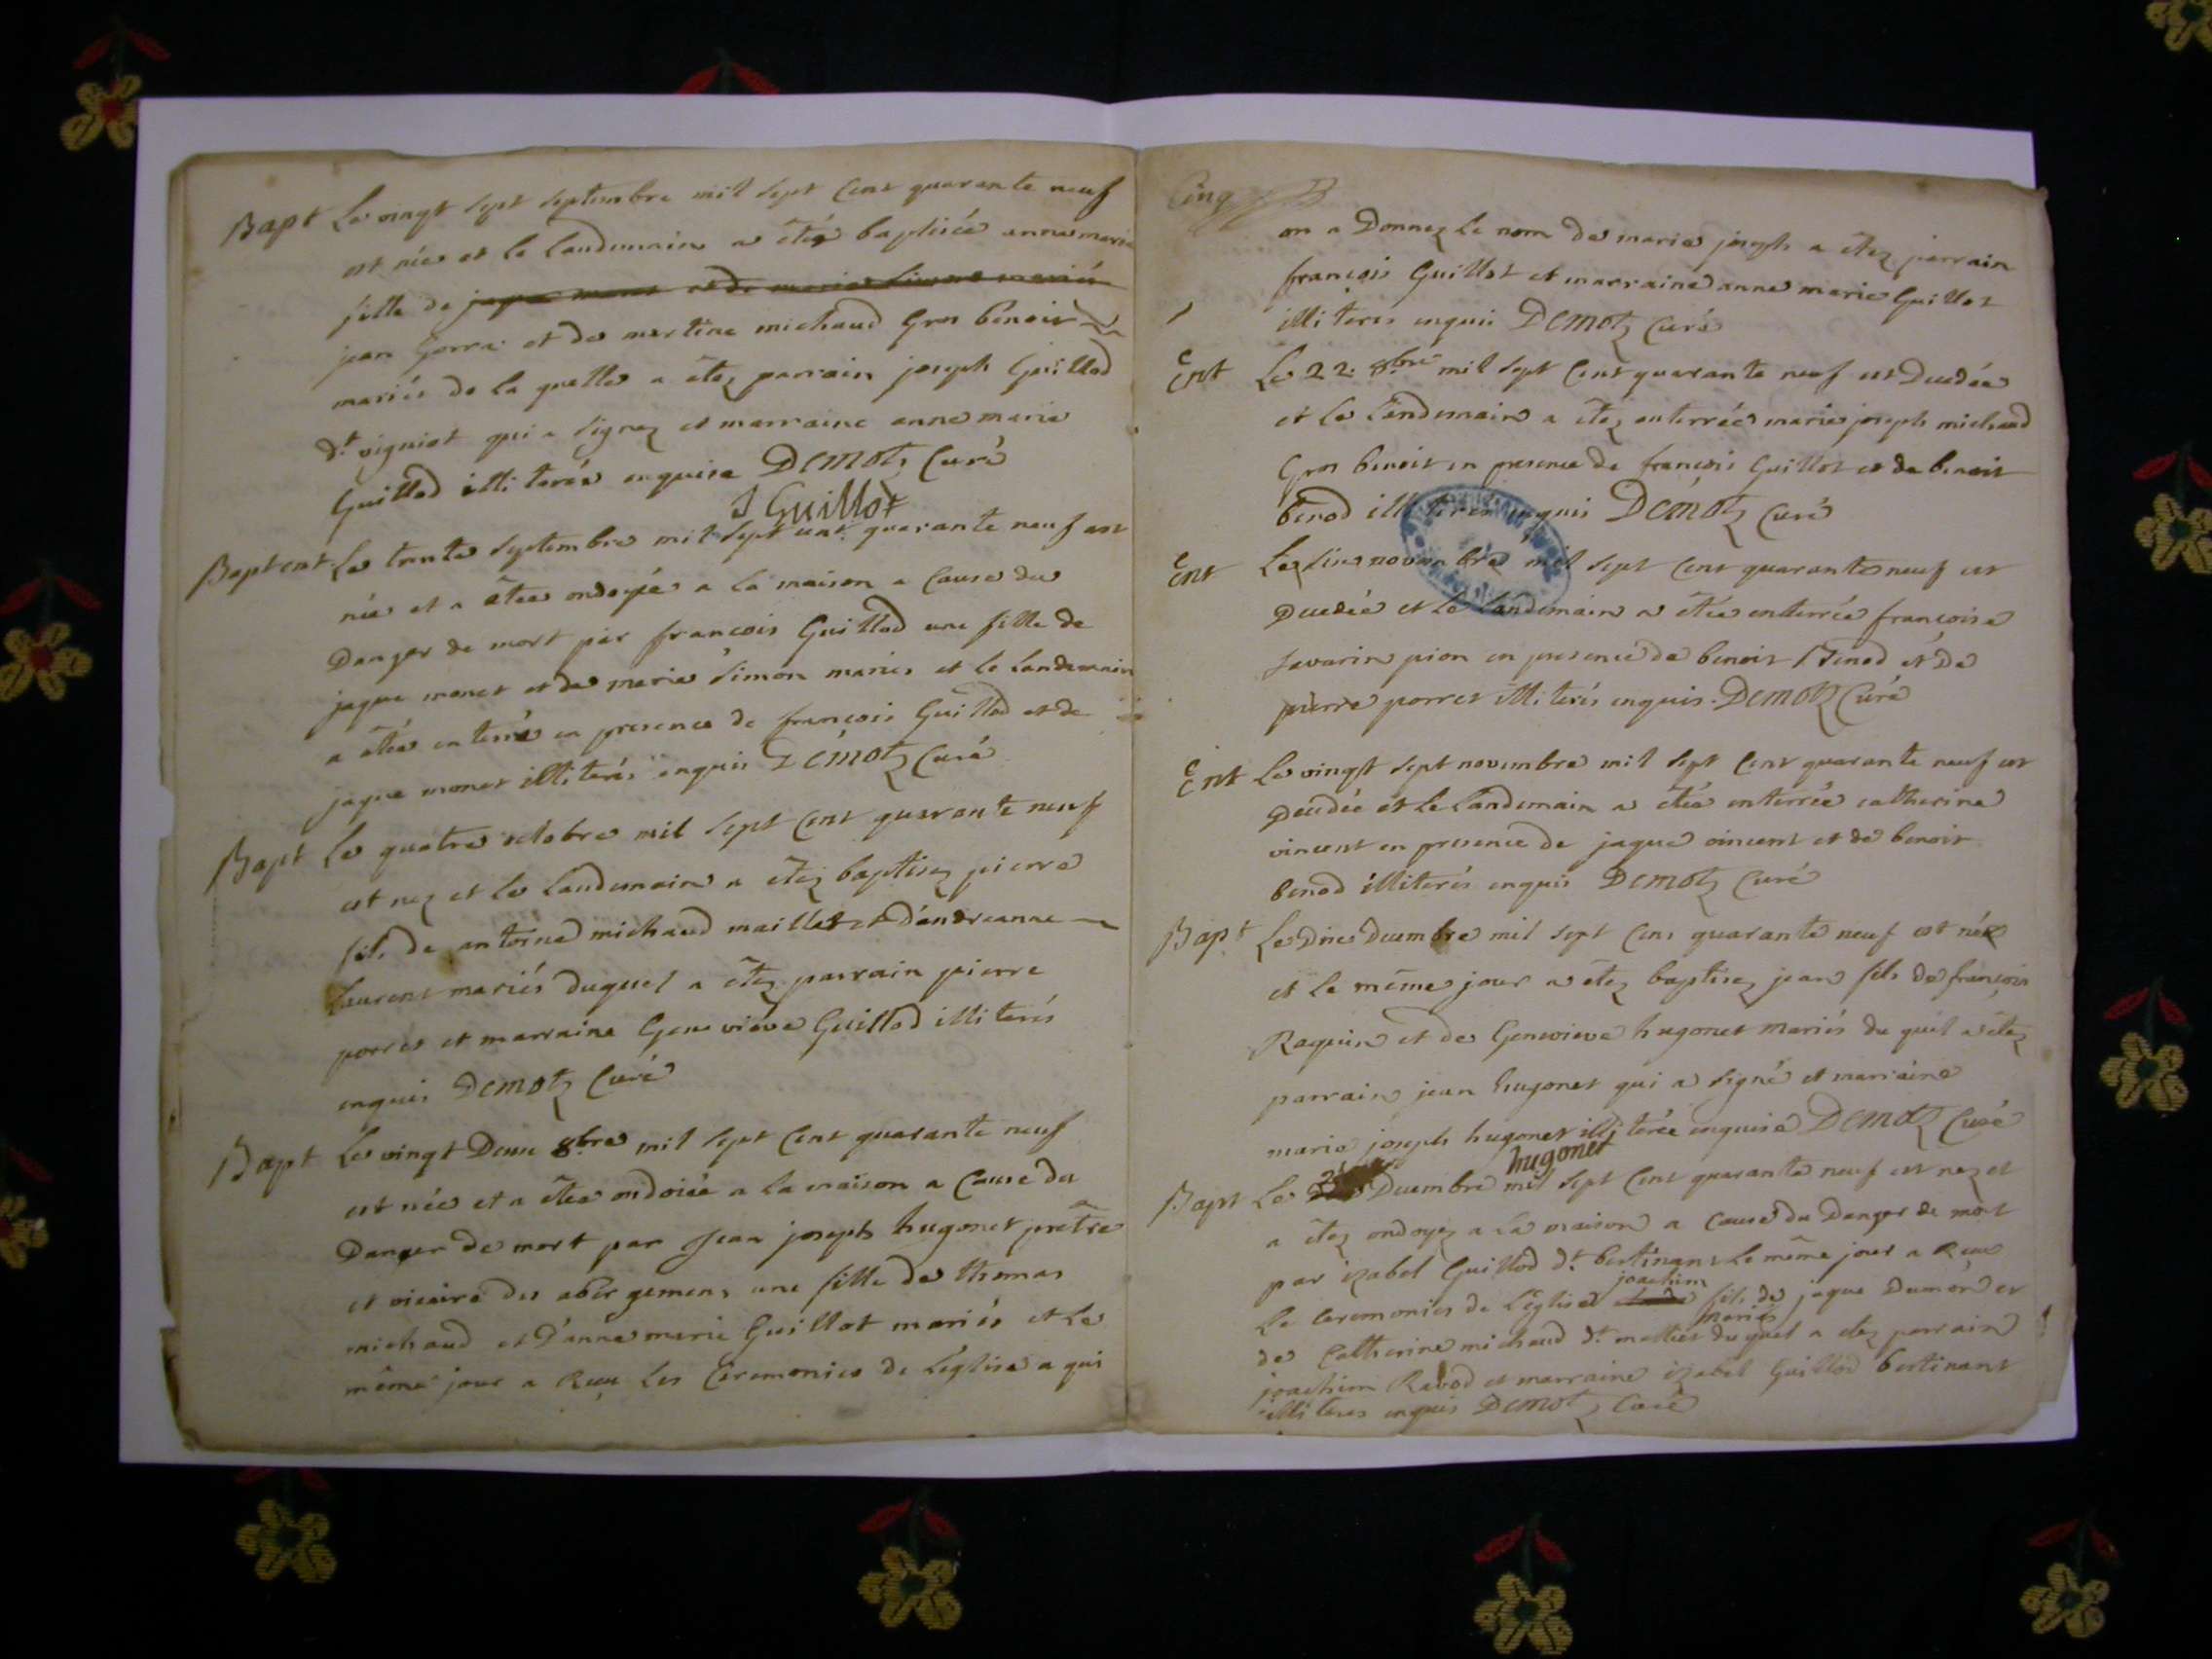 Bapt Le vingt sept septembre mil sept cent quarante neuf
est née et le landemain a étés baptisée anne marie
fille de jaque monet et de marie simone mariés
jean gorra et de martine michaud gros benoit
mariés de la quelle a étez parrain joseph Guillod
dt vigniat qui a signez et marraine anne marie
Guillod illiterée enquise Demotz Curé
J Guillot
Bapt ent Le trente septembre mil sept cent quarante neuf est
née et a étée ondoyée a la maison a cause du
Danger de mort par francois Guillod une fille de
jaque monet et de marie simon mariés et le landemain
a étée enterrée en presence de francois Guillod et de
jaque monet illiterés enquis Demotz Curé
Bapt Le quatre octobre mil sept cent quarante neuf
est nez et le landemain a étez baptisez pierre
fils de antoine michaud maillet et d'andreanne
laurent mariés duquel a étez parrain pierre
porret et marraine Geneviéve Guillod illiterés
enquis Demotz Curé
Bapt Le vingt Deux 8bre mil sept cent quarante neuf
est née et a étée ondoiée a la maison a cause du
Danger de mort par jean joseph hugonet prêtre
et vicaire des abergemens une fille de thomas
michaud et d'anne marie Guillot mariés et le
même jour a Reçu les Ceremonies de l'église a qui
Cinq
on a Donnez le nom de marie joseph a étez parrain
françois Guillot et marraine anne marie Guillot
illiteres enquis Demotz Curé
Ent Le 22 8bre mil sept cent quarante neuf est Decedée
et le landemain a étez enterrée marie joseph michaud
Gros benoit en presence de francois Guillot et de benoit
benod illiteres enquis Demotz Curé
Ent Le six novembre mil sept cent quarante neuf est
Decedée et le landemain a étée enterrée françoise
savarin pion en presence de benoit Benod et de
pierre porret illiterés enquis Demotz Curé
Ent Le vingt sept novembre mil sept cent quarante neuf est
Decedée et le landemain a étée enterrée catherine
vincent en presence de jaque vincent et de benoit
benod illiterés enquis Demotz Curé
Bapt Le Dix Decembre mil sept cens quarante neuf est né
et le même jour a étez baptisez jean fils de françois
Raquin et de Genevieve hugonet mariés du quel a étez
parrain jean hugonet qui a signé et marraine
marie joseph hugonet illiterée enquise Demotz Curé
hugonet
Bapt Le Decembre mil sept cent quarante neuf est nez et
a étez ondoyez a la maison a cause du Danger de mort
par izabel Guillod dt bertinant le même jour a Reçu
joachim
Le Ceremonies de l'église fils de jaque Dumon et
mariés
de Catherine michaud dt du quel a etez parrain
joachim Ravod et marraine izabel Guillod bertinant
illiteres enquis Demotz Curé